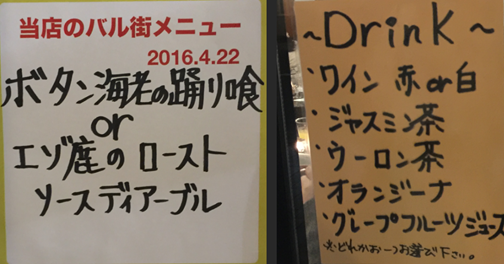 当店のバル街メニュー
2016.4.22
ボタン海老の踊り喰
or
エゾ鹿の ロースト
ソースディアーブル
~Drink~
・ワイン 赤or白
・ジャスミン茶
・ウーロン茶
・オランジーナ
・グレープフルーツジュース
※どれかお一つお選び下さい。